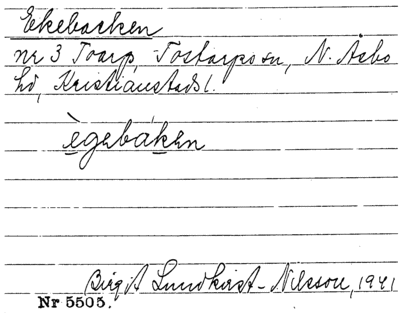 Ekebacken
nr 3 Toarp, Tostarps sn, N. Åsbo
hd, Kristianstads l.
ègebáken
Birgit Lundkvist-Nilsson, 1941
Nr 5505.